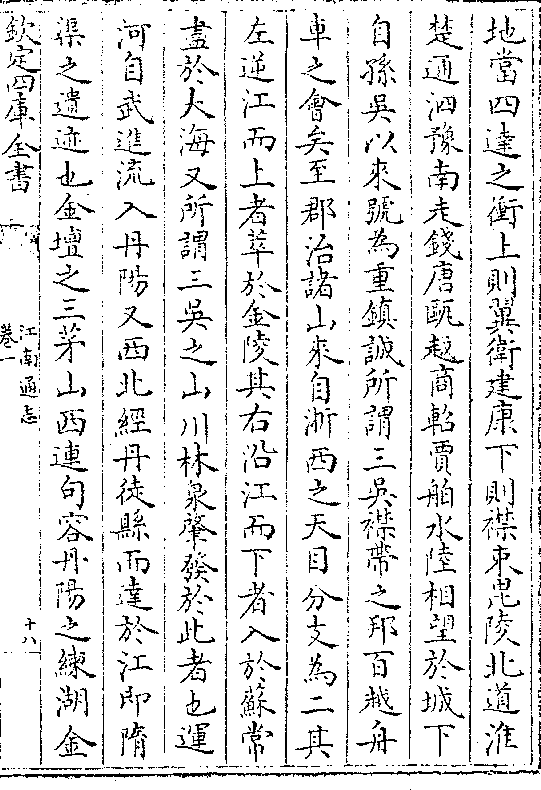 地當四達之衝上則翼衛建康下則襟束毘陵北道淮
楚通泗豫南走錢唐甌越商軺賈舶水陸相望於城下
自孫吳以來號為重鎮誠所謂三吳襟帶之邦百越舟
車之會矣至郡治諸山來自浙西之天目分支為二其
左逆江而上者萃於金陵其右沿江而下者入於蘇常
盡於大海又所謂三吳之山川林泉肇發於此者也運
河自武進流入丹陽又西北經丹徒縣而達於江即隋
渠之遺迹也金壇之三茅山西連句容丹陽之練湖金
欽定四庫全書
江南通志
卷一
十八